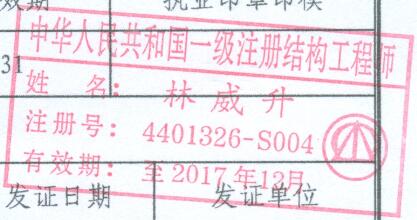 效期 执业印章印模
31
中华人民共和国一级注册结构工程师
姓 名： 林威升
注册号： 4401326-S004
有效期： 至2017年12月
发证日期 发证单位